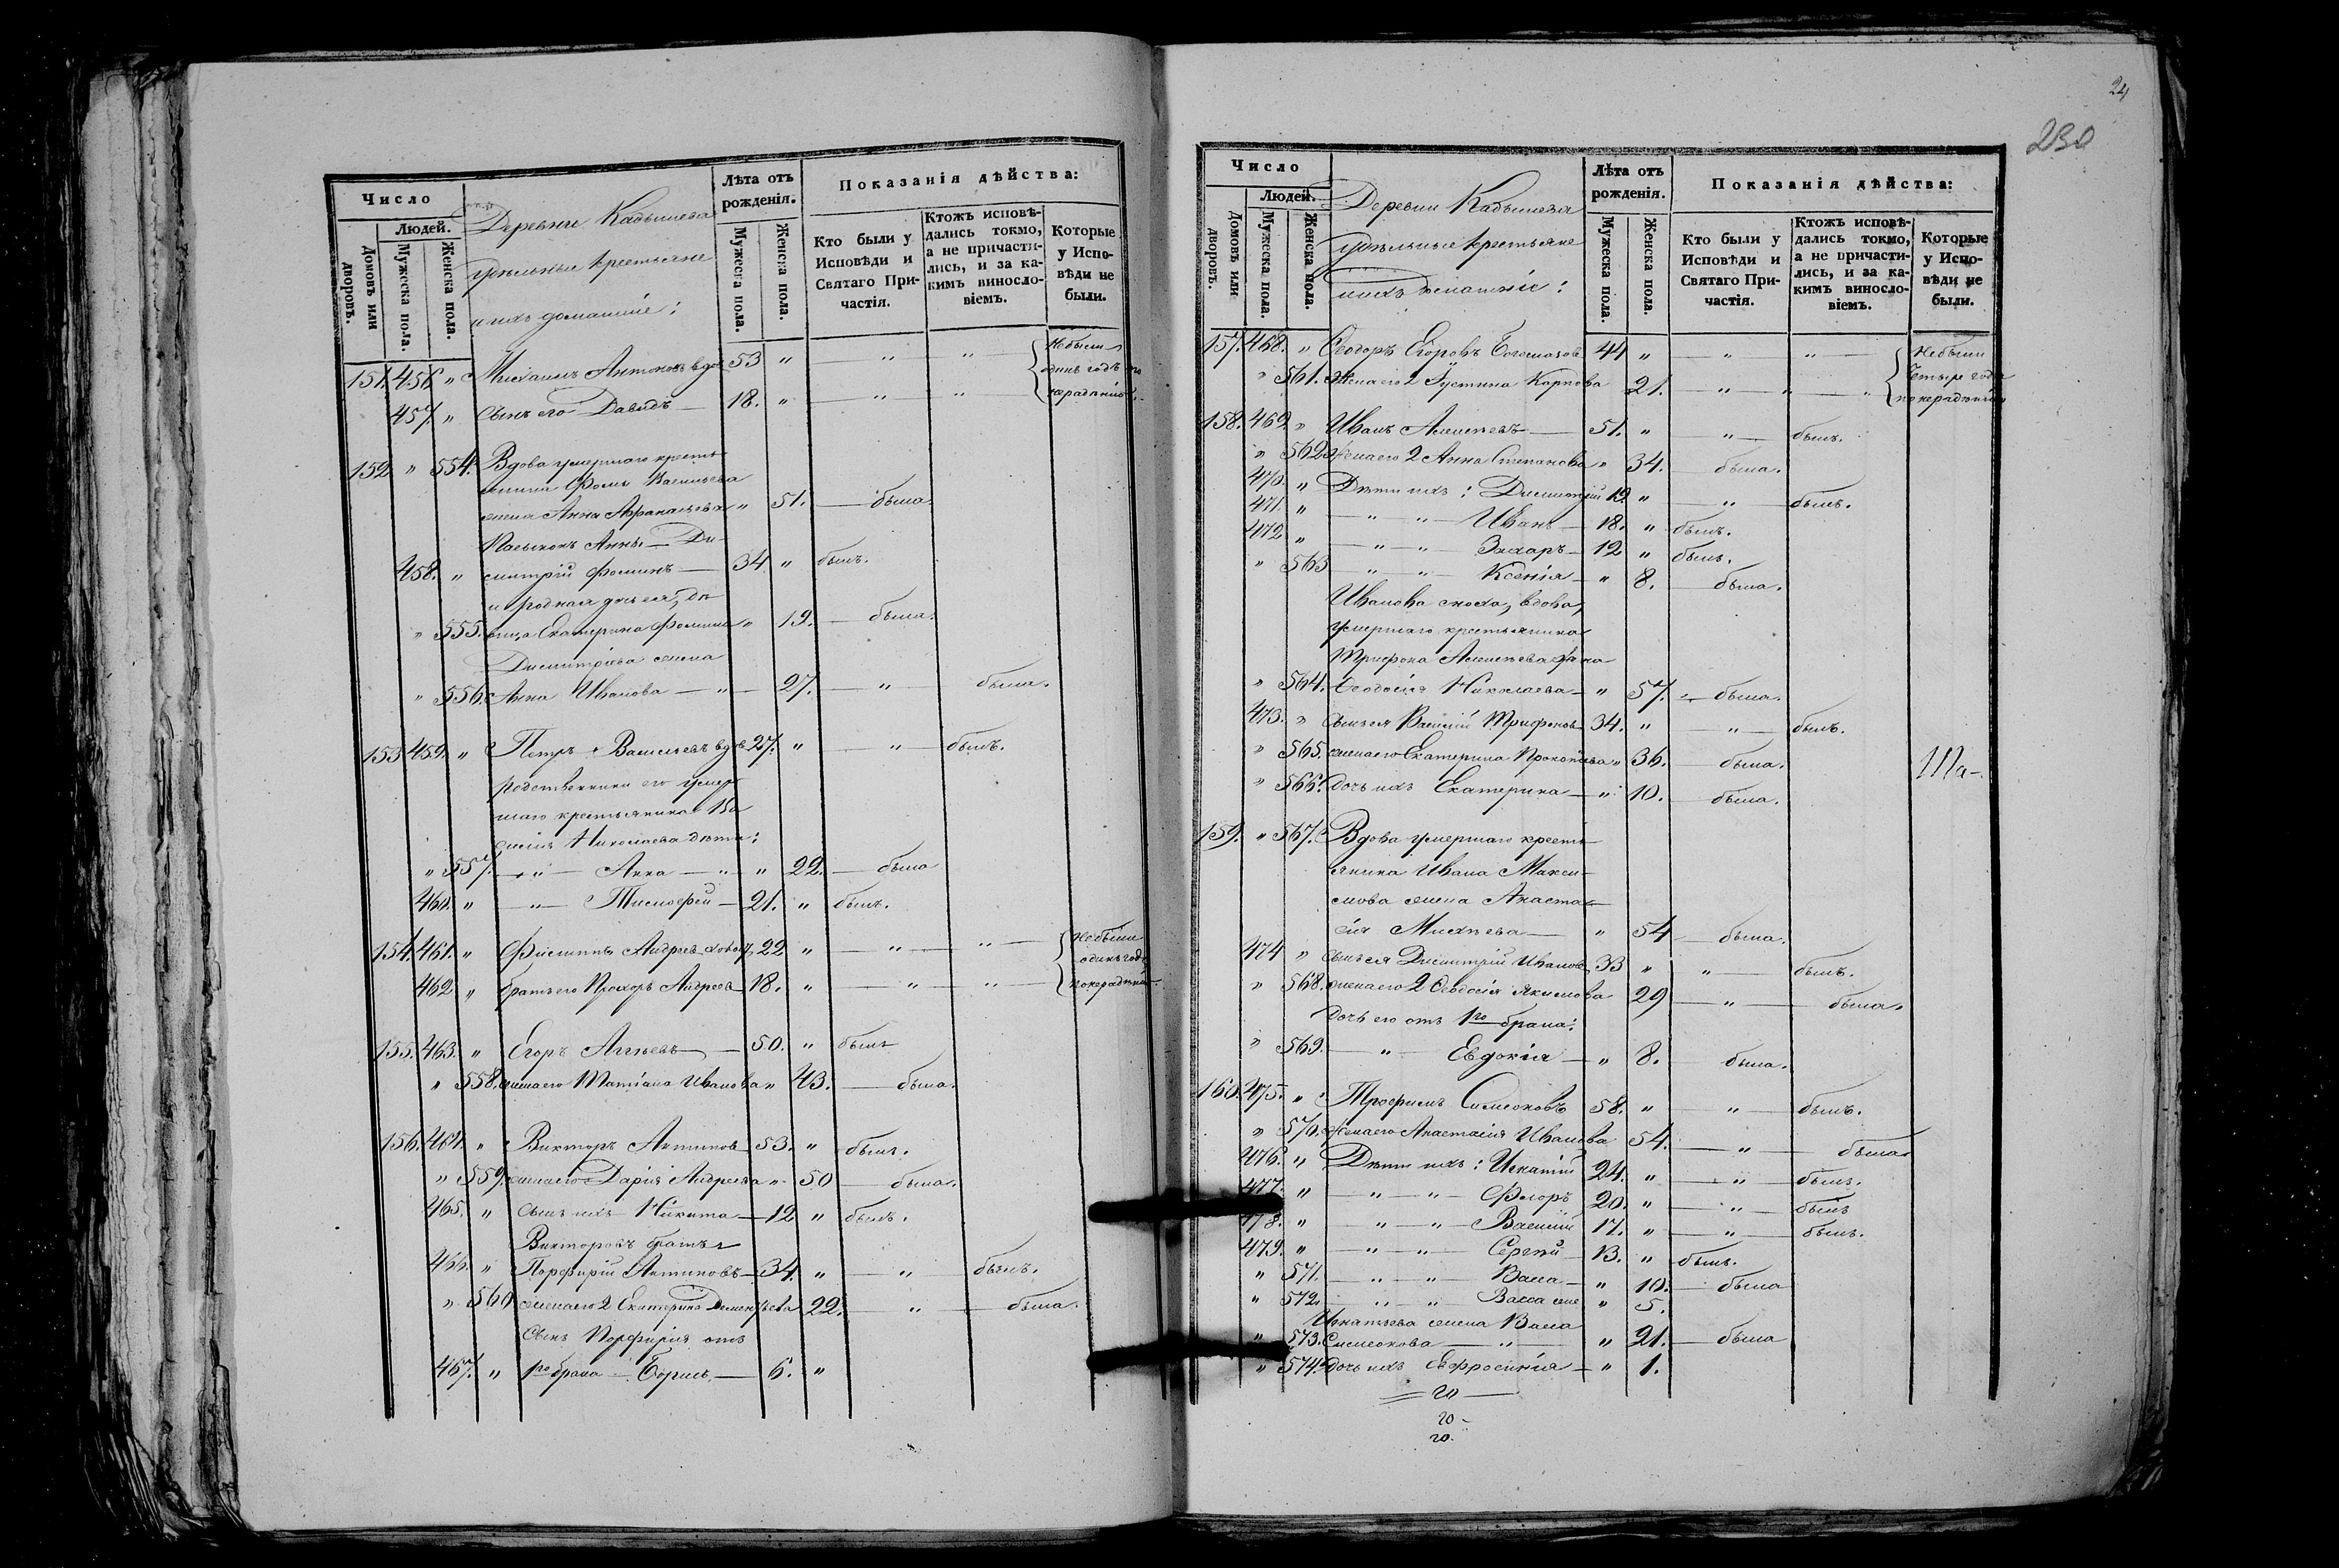 Число
Людей.
Домовъ или дворовъ.
Мужеска пола.
Женска пола.
Деревни Кадышева
удѣльные крестьяне
и ихъ домашніе:
Лѣта отъ рожденія.
Мужеска пола.
Женска пола.
Показанія дѣйства:
Кто были у Исповѣди и Святаго Причастія.
Ктожъ исповѣдались токмо, а не причастились, и за какимъ винословіемъ.
Которые у Исповѣди не были.
151. 456. " Михаилъ Антоновъ вдов 53 " " " Небыли
одинъ годъ по
нерадѣнію
457. " Сынъ его Давидъ 18. " " "
152 " 554. Вдова умершаго кресть-
янина Фомы Васильева
жена Анна Афанасьева " 51. была.
Пасынокъ Анны Ди-
458. " митрій Фоминъ 34 " былъ.
и родная дочь ея, дѣ-
" 555. вица Екатерина Фомина " 19. была.
Димитріева жена
" 556. Анна Иванова " 27. " была.
153 459. " Петръ Васильевъ вдов. 27. " " былъ.
родственники его умер-
шаго крестьянина Ва-
силія Николаева дѣти:
" 557. " Анна " " 22. была
460. " " Тимофей 21. " былъ.
154. 461. " Филиппъ Андреевъ холост, 22 " " " Небыли
одинъ годъ
понерадѣнію
462 " братъ его Прохоръ Андреев 18. " " "
155. 463. " Егоръ Агѣевъ 50. " былъ
" 558. жена его Татіана Иванова " 43. была.
156. 464. " Викторъ Антипов 53. " былъ.
" 559. жена его Дарія Андреева " 50 была.
465. " сынъ ихъ Никита 12 " былъ.
Викторовъ братъ
466. " Порфирій Антиповъ 34. " " былъ.
" 560 жена его 2 Екатерина Дементьева 22. " была.
Сынъ Порфирія отъ
467. " 1го брака Борисъ. 6. "
24
230
Число
Людей.
Домовъ или дворовъ.
Мужеска пола.
Женска пола.
Деревни Кадышева
удѣльные крестьяне
и ихъ домашніе:
Лѣта отъ рожденія.
Мужеска пола.
Женска пола.
Показанія дѣйства:
Кто были у Исповѣди и Святаго Причастія.
Ктожъ исповѣдались токмо, а не причастились, и за какимъ винословіемъ.
Которые у Исповѣди не были.
157. 468. " Ѳеодоръ Егоровъ Богомазов 44 " " " Небыли
четыре года
по нерадѣнію
" 561. Жена его 2 Іустина Карпова 21. " " "
158. 469. " Иванъ Алексѣевъ 51. " " былъ.
" 562 Жена его 2 Анна Степанова " 34. была.
470. " Дѣти ихъ: Димитрій 19. " " былъ.
471. " " " Иванъ 18. " былъ.
472 " " " Захаръ 12 " былъ.
" 563 " " Ксенія " 8. была.
Иванова сноха, вдова,
умершаго крестьянина
Трифона Алексѣева жена
" 564. Ѳеодосія Николаева " 57. была.
473. " сынъ ея Василій Трифонов 34. " " былъ.
" 565. жена его Екатерина Прокопіева " 36. была.
" 566. дочь ихъ Екатерина " 10. была.
159. " 567. Вдова умершаго кресть-
янина Ивана Макси-
мова жена Анаста-
сія Михѣева " 54 была.
474 " сынъ ея Димитрій Иванов 33 " " былъ.
" 568. жена его 2 Ѳеодосія Якимова 29 " была.
Дочь его отъ 1го брака:
" 569. " Евдокія " 8. была.
160. 475. " Трофимъ Симеоновъ 58. " " былъ.
" 570. Жена его Анастасія Иванова 54. " была
476. " Дѣти ихъ: Игнатій 24. " " былъ.
477. " " " Флоръ 20. " " былъ
478. " " " Василій 17. " " былъ.
479. " " " Сергѣй 13. " былъ.
" 571. " " Васса " 10. была
" 572. " " Васса " 5.
Игнатьева жена Васса
" 573. Симеонова " " 21. была
" 574. дочь ихъ Евфросинія " 1.
20
20
20.